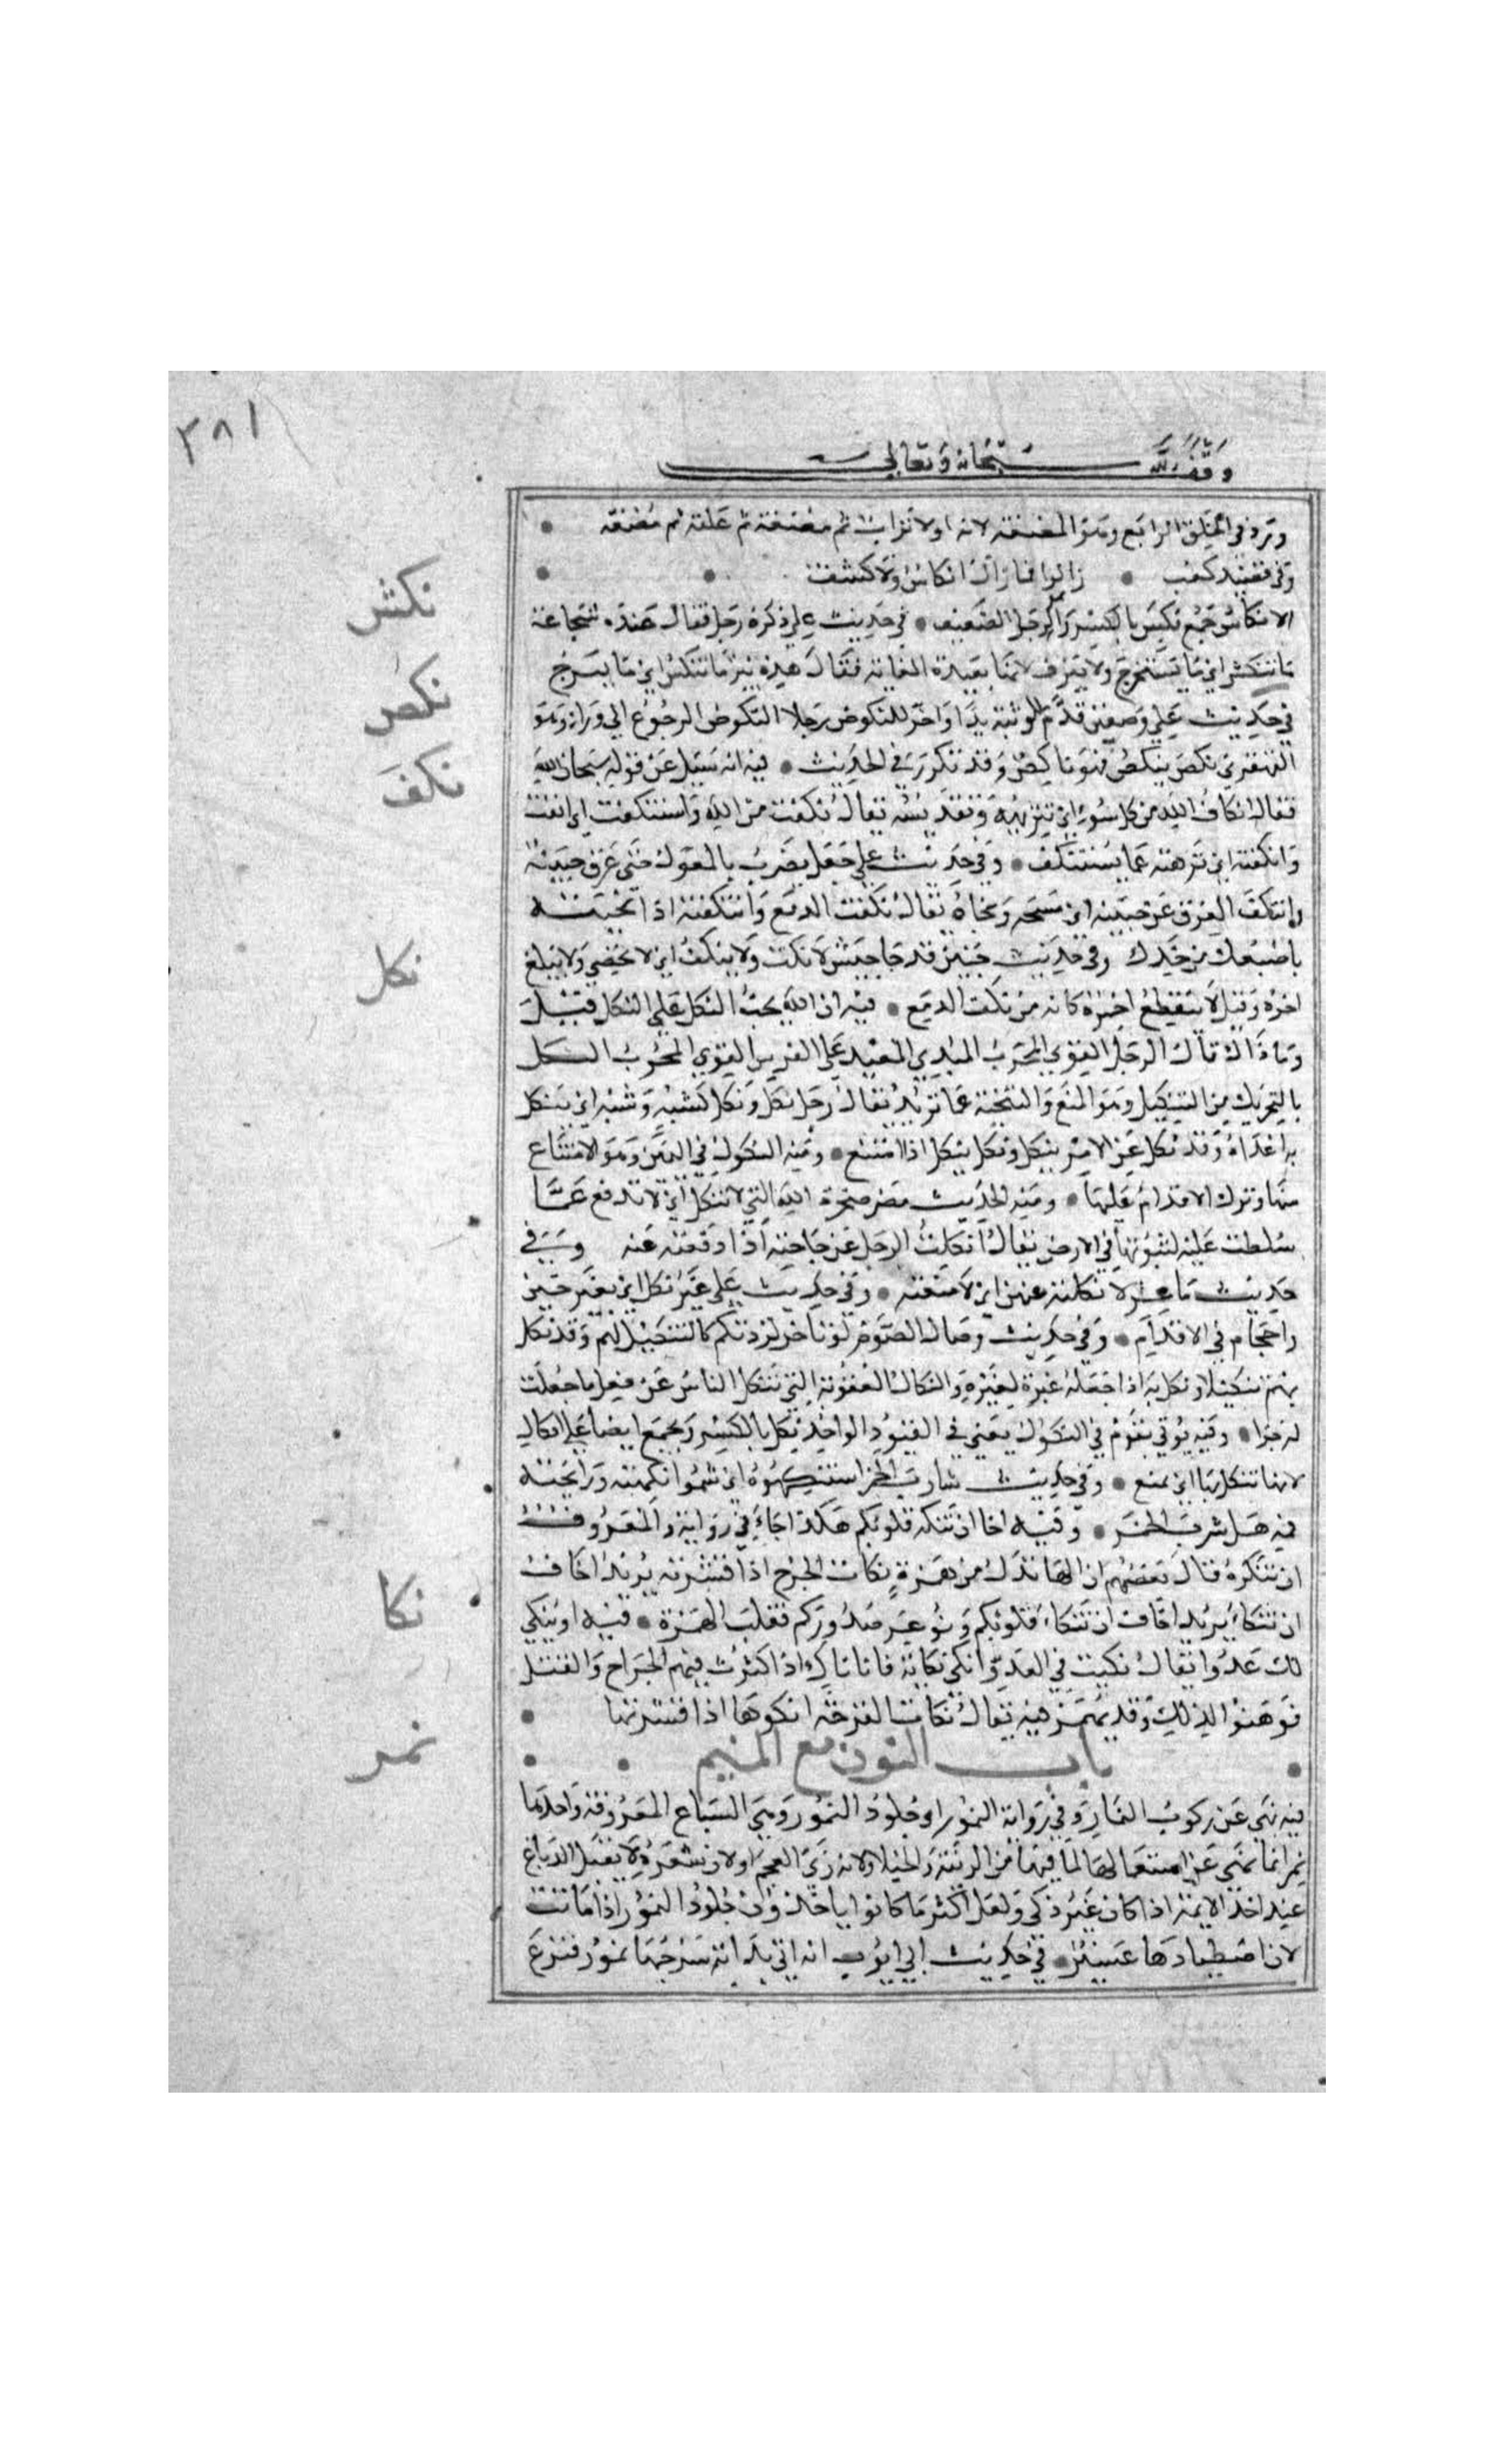 ٣٨١
وقف لله سبحانه وتعالى
ورد في الخلق الرابع وهو المضغة لانه اولا تراب ثم مضغة ثم علقة ثم مضغه
وفي قصيد كعب زالوا فما زال انكاس ولا كشف
الانكاس جمع نكس بالكسر الرجل الضعيف في حديث علي ذكره رجل فقال عنده شجاعة
نكش
ما تنكش اي ما تستخرج ولا ينزف لانها بعيدة الغاية فقال هذه بئر ما تنكش اي ما ينزح
نكص
في حديث علي وصفين قدم للوثبة يدا واخر للنكوص رجلا النكوص الرجوع الي وراء وهو
القهقري نكص ينكص فهو ناكص وقد تكرر في الحديث فيه انه سيل عن قوله سبحان الله
نكف
فقال انكاف الله من كل سوء اي تنزيهه وتقديسه يقال نكفت من الشي واستنكفت اي انفت
وانكفته اي نزهته عما يستنكف وفي حديث علي جعل يضرب بالمعول حتى عرق جبينه
وانتكف العرق عن جبينه اي مسحه ونحاه يقال نكفت الدمع وانتكفته اذا نحيته
باصبعك من خدك وفي حديث حنين قد جا جيش لا يكت ولا ينكف اي لا يحصي ولا يبلغ
نكل
اخره وقيل لا ينقطع اخره كانه من نكف الدمع فيه ان الله يحب النكل علي النكل قيل
وما ذاك قال الرجل القوي المجرب المبدي المعيد علي الفرس القوي المجرب النكل
بالتحريك من التنكيل وهو المنع والتنحية عما تريد يقال رجل نكل ونكل كشبه وشبه اي ينكل
به اعداه وقد نكل عن الامر ينكل ونكل ينكل اذا امتنع ومنه النكول في اليمين وهو الامتناع
منها وترك الاقدام عليها ومنه الحديث مضر صخرة الله التي لا تنكل اي لا تدفع عما
سلطت عليه لثبوتها في الارض يقال انكلت الرجل عن حاجته اذا دفعته عنه
حديث ماعز لانكلنه عنهن اي لامنعنه وفي حديث علي غير نكل اي بغير جبن
واحجام في الاقدام وفي حديث وصال الصوم لو تاخر لزدتكم كالتنكيل لهم وقد نكل
بهم تنكيلا ونكل به اذا جعله عبرة لغيره والنكال العقوبة التي تنكل الناس عن فعل ما جعلت
له جزا وفيه يوتي بقوم في النكول يعني في القيود الواحد نكل بالكسر ويجمع ايضا علي انكال
لانها تنكل بها اي يمنع وفي حديث شارب الخمر استنكهوه اي شموا نكهته ورايحته
فيه هل شرب الخمر وفيه اخاف ان تنكه قلوبكم هكذا جاء في رواية والمعروف
ان تنكره قال بعضهم ان الها بدل من همزة نكات الجرح اذا قشرته يريد اخاف
نكا
ان تنكاء يريد اخاف ان تنكاء قلوبكم ويوغر صدوركم فقلب الهمزة فيه او ينكي
لك عدوا يقال نكيت في العدو انكي نكاية فانا ناك اذا اكثرت فيهم الجراح والقتل
فوهنوا لذلك وقد يهمز فيه يقال نكات القرحة انكوها اذا قشرتها
باب النون مع الميم
نمر
فيه نهي عن ركوب النمار وفي رواية النمور اي جلود النمور وهي السباع المعروفة واحدها
نمر انما نهي عن استعمالها لما فيها من الزينة والخيلا ولانه زي العجم او لان شعره لا يقبل الدباغ
عند احد الايمة اذا كان غير ذكي ولعل اكثر ما كانوا ياخذون جلود النمور اذا ماتت
لان اصطيادها عسير في حديث ابي ايوب انه اتي بدابة سرجها نمور فنزع